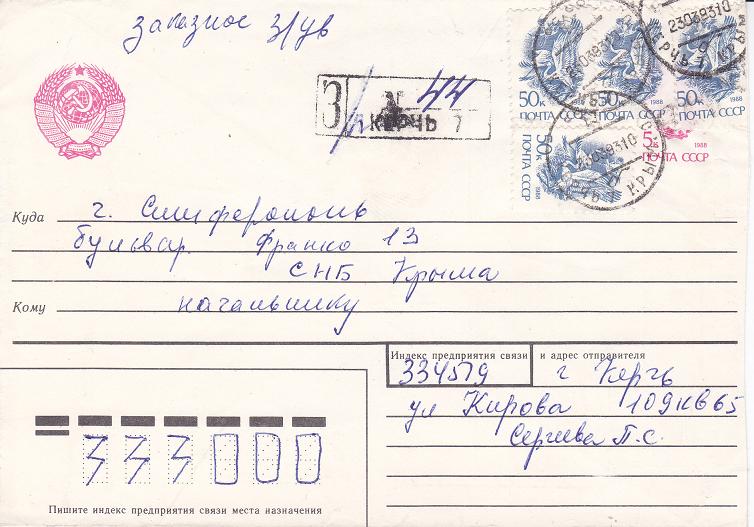 заказное з/ув
З № 44
КЕРЧЬ 7
50к 1988 ПОЧТА СССР
50к 1988 ПОЧТА СССР
50к 1988 ПОЧТА СССР
50к 1988 ПОЧТА СССР
5к 1988 ПОЧТА СССР
23039310
КЕРЧЬ 7 КРЫМ
Куда г. Симферополь
бульвар. Франко 13
СНБ Крыма
Кому начальнику
Индекс предприятия связи и адрес отправителя
334519 г Керчь
ул Кирова 109 кв 65
Сергиева П. С.
333000
Пишите индекс предприятия связи места назначения